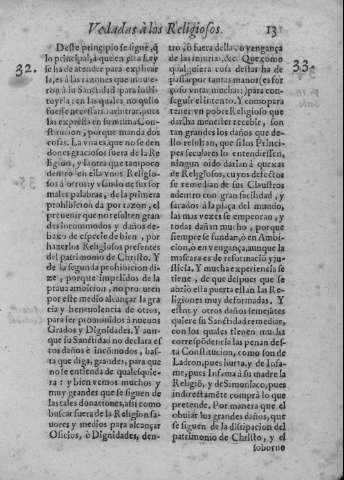 Vedadas à los Religiosos. 13
32.
Deste principio se sigue, q̃
lo principal, à que en esta Ley
se ha de atender para explicar
la, es à las razones que mouie-
ron à su Sanctidad para insti-
tuyrla; en las quales no quiso
fuesse necessario arbitrar, pues
las expresſa en su misma Con-
stitucion, porque manda dos
cosas. La vna es, que no se den
dones graciosos fuera de la Re-
ligion, y la otra que tampoco
dentro en ella vnos Religio-
sos à otros; y saiido de sus for
males palabras, de la primera
prohibicion da por razon, el
preuenir que no resulten gran
des incommodos y daños de-
baxo de especie de bien, por
hazerlos Religiosos presentes
del patrimonio de Christo. Y
de la segunda prohibicion di-
ze, porque impelidos de la
praua ambicion, no procuren
por este medio alcançar la gra
cia y beneuolencia de otros,
para ser promouidos à nueuos
Grados y Dignidades. Y aun-
que su Sãctidad no declara es
tos daños è incõmodos, bas-
ta que diga, grandes, para que
no se entienda de qualesquie-
ra: y bien vemos muchos y
muy grandes que se siguen de
las tales donationes, assi como
buscar fuera de la Religion fa-
uores y medios para alcançar
Oficios, ò Dignidades, den-
33.
tro, ò fuera della, ò vengança
de las injurias, &c. Que como
qualquiera cosa destas ha de
passar por tantas manos (es for
çoso vntar muchas) para con-
seguir el intento. Y como para
tener vn pobre Religioso que
dar, ha menester recebir, son
tan grandes los daños que de-
llo resultan, que si los Princi-
pes seculares lo entendiessen,
ningun oido darian à quexas
de Religiosos, cuyos defectos
se remedian de sus Claustros
adentro con gran facilidad, y
sacados à la plaça del mundo,
las mas vezes se empeoran, y
todas dañan mucho, porque
siempre se fundan, ò en Ambi-
cion, ò en vengança, aunque la
mascara es de reformaciõ y ju-
sticia. Y mucha experiencia se
tiene, de que despues que se
abrio ella puerta estan las Re-
ligiones muy deformadas. Y
estos y otros daños semejãtes
quiere su Sanctidad remediar,
con los quales tienen mucha
correspõdencia las penas des-
ta Constitucion, como son de
Ladron, pues hurta, y de Infa-
me, pues infama à su madre la
Religiõ, y de Simoniaco, pues
indirectamẽte comprà lo que
pretende. Por manera que el
obuiar los grandes daños, que
se siguen de la dissipacion del
patrimonio de Christo, y el
soborno